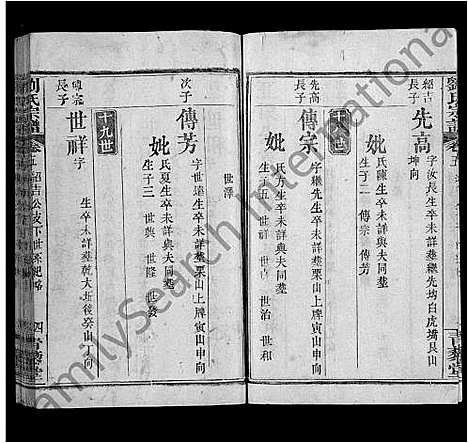 劉氏宗譜
卷五
紹吉
長子
先高
字汝長生卒未詳葬繼先均白虎嶠艮山
坤向
妣
氏陳生卒未詳與夫同葬
生子二 傳宗 傳芳
十八世
先高
長子
傳宗
字繼先生卒未詳葬栗山上牌寅山申向
妣
氏方生卒未詳與夫同葬
生子三 世吉 世治 世和
世澤
次子
傳芳
字世遠生卒未詳葬栗山上牌寅山申向
妣
氏夏生卒未詳與夫同葬
生子三 世興 世隆 世發
十九世
傳宗
長子
世祥
字 生卒未詳葬乾大坵後癸山丁向
劉氏宗譜
卷五 紹吉公支下世系紀略
四 青藜堂
FamilySearch International